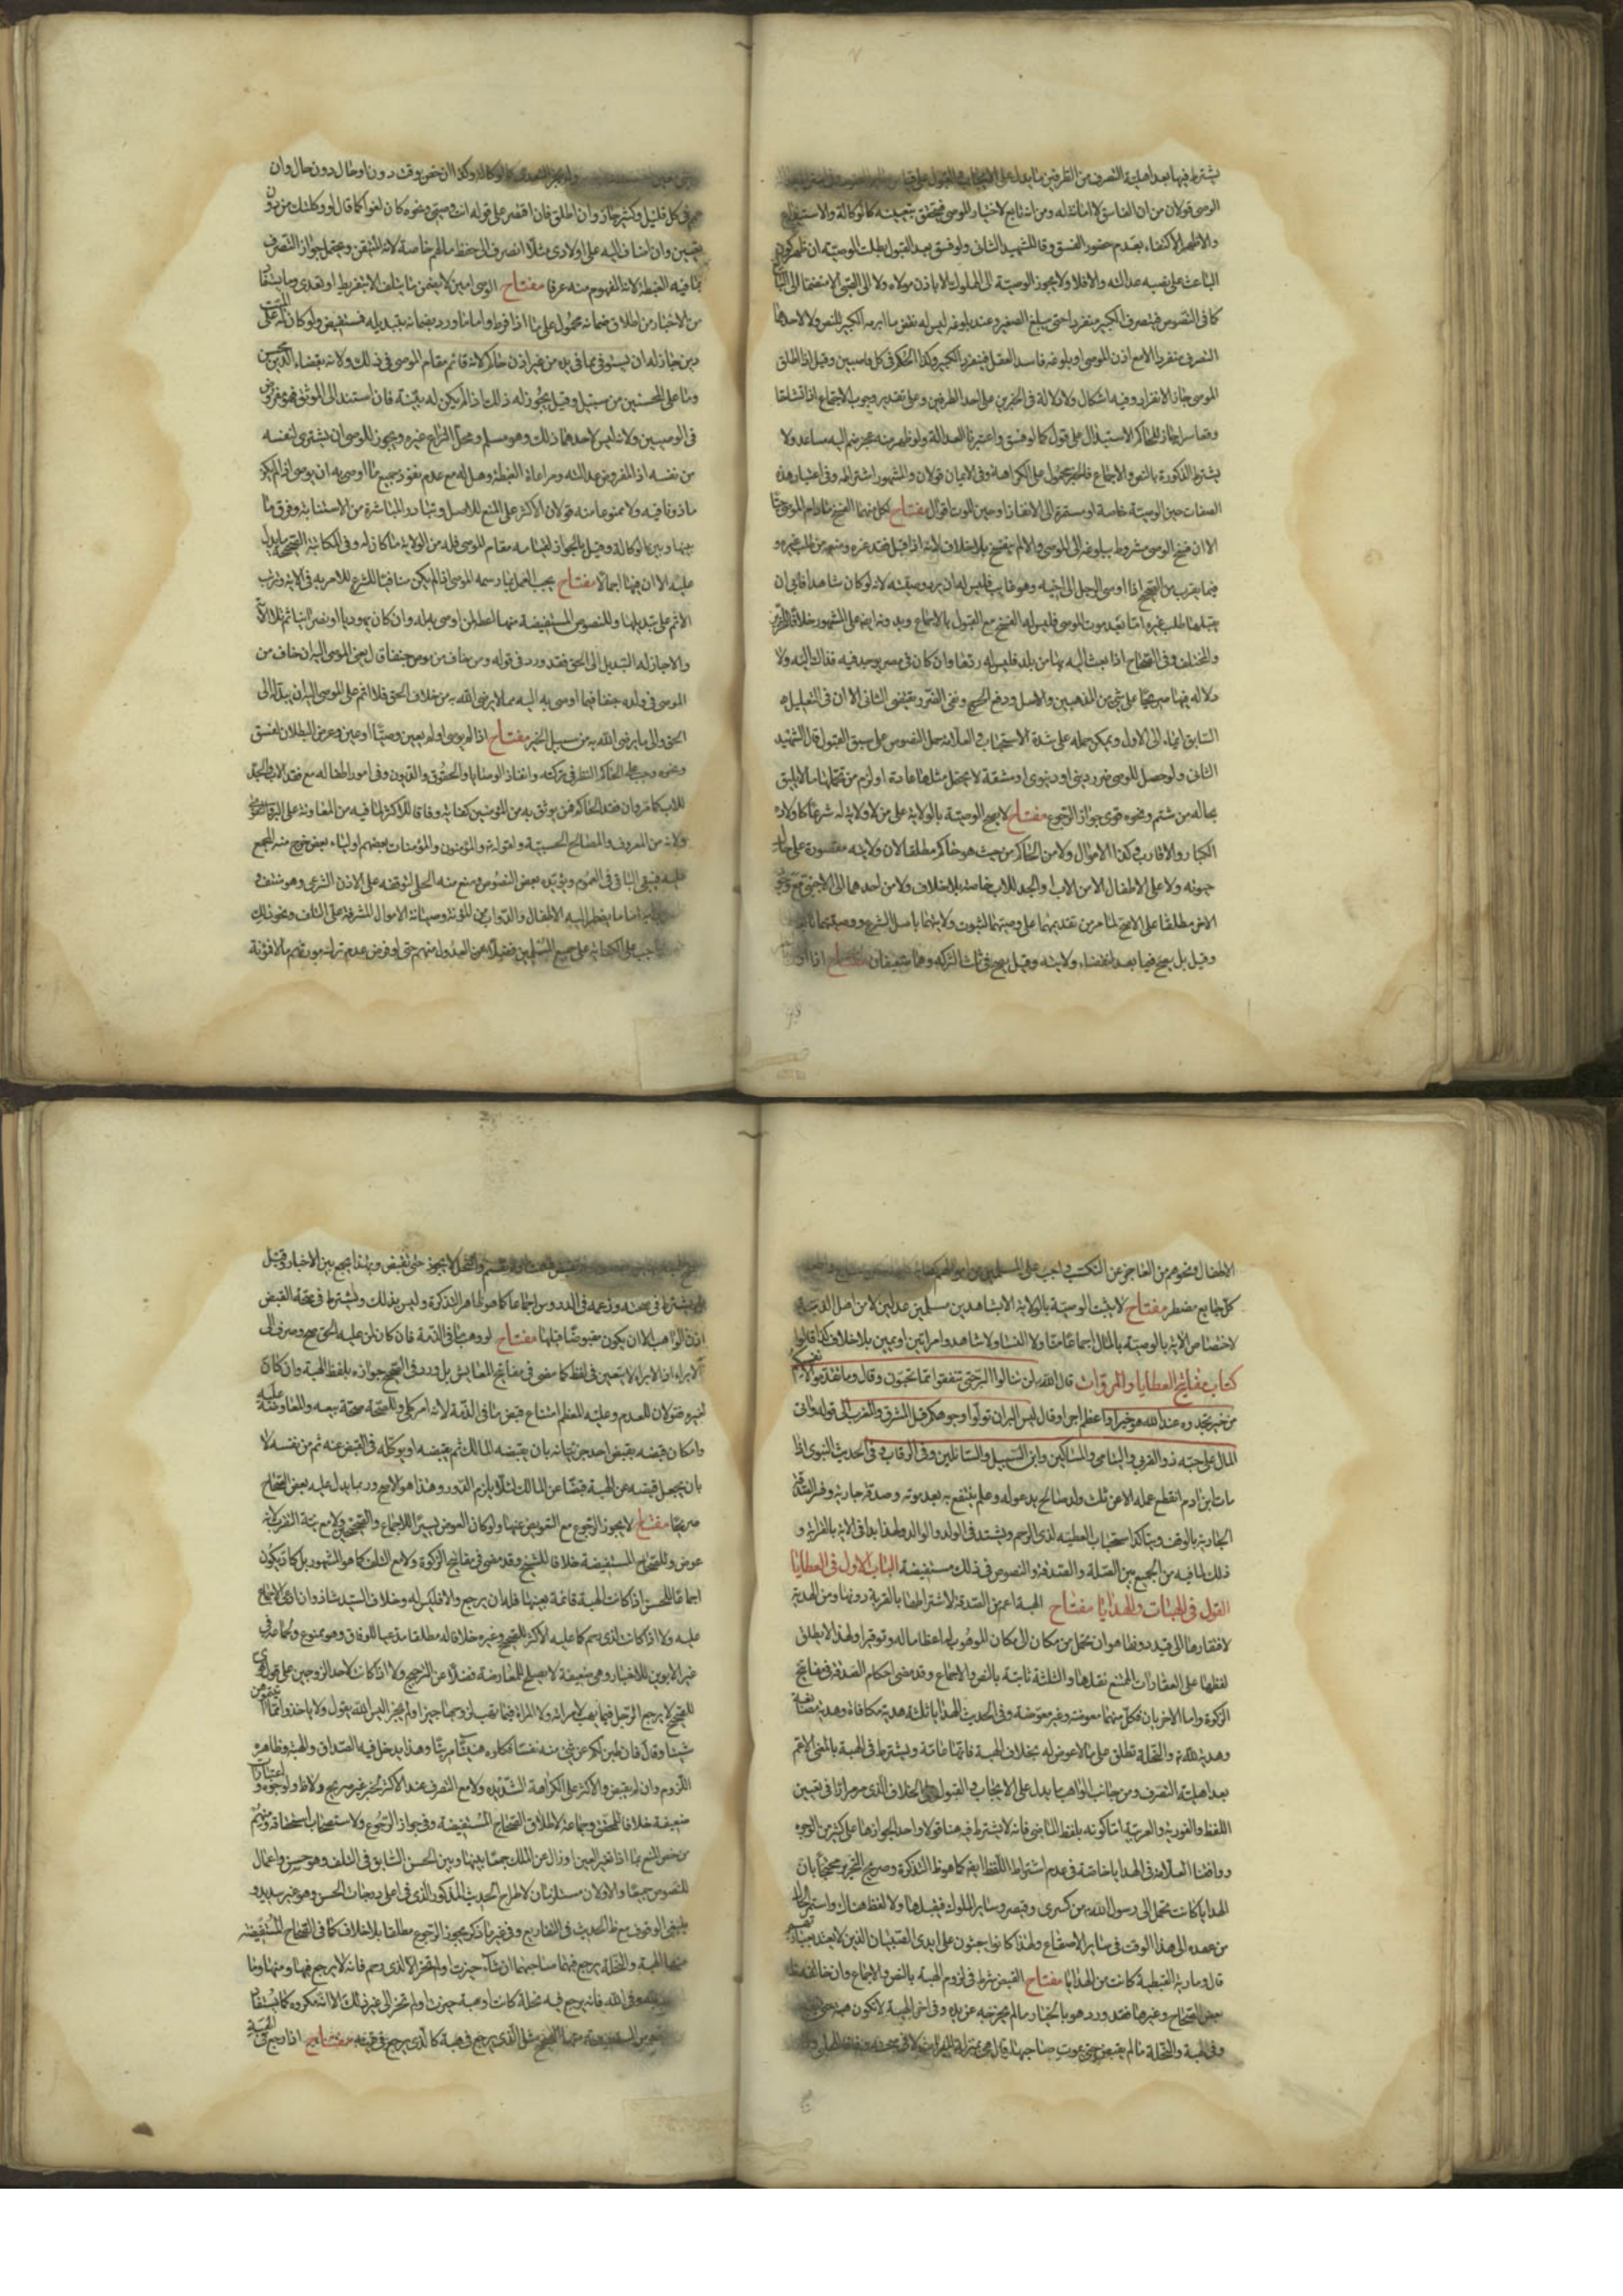 يشترط فيها بعد اهلية التصرف من الطرفين ما يدل على الايجاب والقبول على قياس
الوصى قولان من ان الفاسق لا امانة له ومن انه تابع لاختيار الموصى فيتحقق بتعيينه كالوكالة والاستيداع
والاظهر الاكتفاء بعدم حضور الفسق وقال الشهيد الثانى ولو فسق بعد القبول بطلت الوصية ان ظهر كون
الباعث على نصبه عدالته والا فلا ولا يجوز الوصية الى المملوك الا باذن مولاه ولا الى الصبى الا منضما الى البالغ
كما فى النصوص فيتصرف الكبير منفردا حتى يبلغ الصغير وعند بلوغه ليس له نقض ما ابرمه الكبير للنص ولا لاحدهما
التصرف منفردا الا مع اذن الموصى او بلوغه فاسد العقل فينفرد الكبير وكذا الحكم فى كل وصيين وقيل اذا اطلق
الموصى جاز الانفراد وفيه اشكال ولا دلالة فى الخبرين على احد الطرفين وعلى تقدير وجوب الاجتماع اذا تشاحا
وتعاسرا جاز للحاكم الاستبدال على قول كما لو فسق واعتبرنا العدالة ولو ظهر منه عجز ضم اليه مساعد ولا
يشترط الذكورة بالنص والاجماع فالخبر محمول على الكراهة وفى الايمان قولان والمشهور اشتراطه وفى اعتبار هذه
الصفات حين الوصية خاصة او مستمرة الى الانفاذ او حين الموت اقوال مفتاح لكل منهما الفسخ ما دام الموصى حيا
الا ان فسخ الوصى مشروط ببلوغه الى الموصى والا لم ينفسخ بلا خلاف لانه اذا قبل فقد غره ومنعه من طلب غيره و
فيما يقرب من الصحيح اذا اوصى الرجل الى اخيه وهو غايب فليس له ان يرد وصيته لانه لو كان شاهدا فابى ان
يقبلها طلب غيره اما بعد موت الموصى فليس له الفسخ مع القبول بالاجماع وبدونه ايضا على المشهور خلافا للتحرير
والمختلف وفى الصحاح اذا بعث اليه بها من بلد فليس له ردها وان كان فى مصر يوجد فيه فذاك اليه ولا
دلالة فيها صريحا على شىء من المذهبين والاصل ودفع الحرج ونفى الضرر يقتضى الثانى الا ان فى التعليل
السابق ايماء الى الاول ويمكن حمله على شدة الاستحباب وفى العلامة حمل النصوص على سبق القبول قال الشهيد
الثانى ولو حصل للوصى ضرر دينى او دنيوى او مشقة لا يحتمل مثلها عادة او لزم من تحملها ما لا يليق
بحاله من شتم ونحوه قوى جواز الرجوع مفتاح لا يصح الوصية بالولاية على من لا ولاية له شرعا كاولاده
الكبار والاقارب وكذا الاموال ولا من الحاكم من حيث هو حاكم مطلقا لان ولايته مقصورة على حال
حيوته ولا على الاطفال الا من الاب او الجد للاب خاصة بلا خلاف ولا من احدهما الى الاجنبى مع وجود
الاخر مطلقا على الاصح لما مر من تقديمهما على وصيتهما لثبوت ولايتهما باصل الشرع ووصيتهما
وقيل بل يصح فيها بعد انقضاء ولايته وقيل يصح فى ثلث التركة وهما ضعيفان مفتاح اذا
ولم يجز التعدى كالوكالة وكذا ان خص بوقت دون او حال دون حال وان
عمم فى كل قليل وكثير جاز وان اطلق فان اقتصر على قوله انت وصيى ونحوه كان لغوا كما قال او وكلتك من دون
تعيين وان اضاف اليه على اولادى مثلا انصرف الى حفظ مالهم خاصة لانه المتيقن ويحتمل جواز التصرف
بما فيه الغبطة لانه المفهوم منه عرفا مفتاح الوصى امين لا يضمن ما يتلف الا بتفريط او تعدى وما يستفاد
من الاخبار من اطلاق ضمانه محمول على ما اذا فرط واما ما ورد بضمانه بتبديله فمستفيض ولو كان له على الميت
دين جاز له ان يستوفى مما فى يده من غير اذن حاكم لانه قائم مقام الموصى فى ذلك ولانه بقضاء الدين محسن
وما على المحسنين من سبيل وقيل يجوز له ذلك اذا لم يكن له بينة فان استند الى الموثق فهو مفروض
فى الوصيين ولا انه ليس لاحدهما ذلك وهو مسلم ومحل النزاع غيره ويجوز للوصى ان يشترى لنفسه
من نفسه اذ المفروض عدالته ومراعاة الغبطة وهل له مع عدم نفوذ جميع ما اوصى به ان يوصى اذا لم يكن
ماذونا فيه ولا ممنوعا منه قولان الاكثر على المنع للاصل وتبادر المباشرة من الاستنابة وفرق ما
بينها وبين الوكالة وقيل بالجواز لقيامه مقام الموصى فله من الولاية ما كان له وفى المكاتبة الصحيحة ما يدل
عليه الا ان فيها اجمالا مفتاح يجب العمل بما رسمه الموصى اذا لم يكن منافيا للشرع للامر به فى الاية وترتب
الاثم على تبديلها وللنصوص المستفيضة منها اعطه لمن اوصى به له وان كان يهوديا او نصرانيا ثم تلا الاية
والا جاز له التبديل الى الحق فقد ورد فى قوله ومن خاف من موص جنفا قال يعنى الموصى اليه ان خاف من
الموصى فى ولده جنفا فيما اوصى به اليه مما لا يرضى الله به من خلاف الحق فلا اثم على الموصى اليه ان يبدله الى
الحق والى ما يرضى الله به من سبيل الخير مفتاح اذا لم يوص او لم يعين وصيا او عين وعرض البطلان لفسق
ونحوه وجب على الحاكم النظر فى تركته وانفاذ الوصايا والحقوق والديون وفى امور اطفاله مع فقد الاب والجد
للاب كما مر وان فقد الحاكم فمن يوثق به من المؤمنين كفاية وفاقا للاكثر لما فيه من المعاونة على البر والتقوى
ولانه من المعروف والمصالح الحسبية ولقوله تعالى والمؤمنون والمؤمنات بعضهم اولياء بعض خرج منه المجمع
عليه فيبقى الباقى فى العموم ويؤيده بعض النصوص ومنع منه الحلى لتوقفه على الاذن الشرعى وهو منتف و
اما ما يضطر اليه الاطفال والدواب من المؤنة وصيانة الاموال المشرفة على التلف ونحو ذلك
واجب على الكفاية على جميع المسلمين فضلا عن العدول منهم حتى لو فرض عدم تركة مورثهم مالا فمؤنة
الاطفال ونحوهم من العاجز عن التكسب واجب على المسلمين من اموالهم
كل جايع مضطر مفتاح لا يثبت الوصية بالولاية الا بشاهدين مسلمين عدلين لا من اهل الذمة
لاختصاص الاية بالوصية بالمال اجماعا منا ولا النساء ولا شاهد وامراتين او يمين بلا خلاف كذا قالوا
كتاب مفاتيح العطايا والمروات قال الله لن تنالوا البر حتى تنفقوا مما تحبون وقال وما تقدموا لانفسكم
من خير تجدوه عند الله هو خيرا واعظم اجرا وقال ليس البر ان تولوا وجوهكم قبل المشرق والمغرب الى قوله واتى
المال على حبه ذو القربى واليتامى والمساكين وابن السبيل والسائلين وفى الرقاب وفى الحديث النبوى اذا
مات ابن ادم انقطع عمله الا عن ثلث ولد صالح يدعو له وعلم ينتفع به بعد موته وصدقة جارية وفسر الصدقة
الجارية بالوقف ويتاكد استحباب العطية لذى الرحم ويشتد فى الولد والوالد ولهذا بدا فى الاية بالقرابة و
ذلك لما فيه من الجمع بين الصلة والصدقة والنصوص فى ذلك مستفيضة الباب الاول فى العطايا
القول فى الهبات والهدايا مفتاح الهبة اعم من الصدقة لاشتراطها بالقربة دونها ومن الهدية
لافتقارها الى قيد وهو ان تحمل من مكان الى مكان الموهوب له اعظاما له وتوقيرا ولهذا لا يطلق
لفظها على العقارات الممتنع نقلها والثلثة ثابتة بالنص والاجماع وقد مضى احكام الصدقة فى مفاتيح
الزكوة واما الاخريان فكل منهما معوضة وغير معوضة وفى الحديث الهدايا ثلثة هدية مكافاة وهدية مصانعة
وهدية لله والنحلة تطلق على ما لا عوض له بخلاف الهبة فانها عامة ويشترط فى الهبة بالمعنى الاعم
بعد اهلية التصرف ومن جانب الواهب ما يدل على الايجاب والقبول على الخلاف الذى مر مرارا فى تعيين
اللفظ والفورية والعربية اما كونه بلفظ الماضى فانه لا يشترط فيه هنا قولا واحدا لجوازها على كثير من الوجوه
ووافقنا العلامة فى الهدايا خاصة فى عدم اشتراط اللفظ ايضا كما هو ظ التذكرة وصريح التحرير محتجا بان
الهدايا كانت تحمل الى رسول الله من كسرى وقيصر وساير الملوك فيقبلها ولا لفظ هناك واستمر الحال
من عهده الى هذا الوقت فى ساير الاصقاع ولهذا كانوا يبعثون على ايدى الصبيان الذين لا يعتد بعبارتهم
قال ومارية القبطية كانت من الهدايا مفتاح القبض شرط فى لزوم الهبة بالنص والاجماع وان خالفه ظ
بعض الصحاح وغيرها فقد ورد هو بالخيار ما لم يخرجه عن يده وفى اخر الهبة لا تكون هبة حتى يقبضها
وفى الهبة والنحلة ما لم يقبض حتى يموت صاحبها قال هى بمنزلة الميراث لا فى صحته وفاقا للحلى
لا يجوز حتى يقبض وبهذا يجمع بين الاخبار وقيل
يشترط فى صحته وزعمه فى الدروس اجماعا كما هو ظاهر التذكرة وليس بذلك ويشترط فى صحة القبض
اذن الواهب الا ان يكون مقبوضا قبلها مفتاح لو وهب ما فى الذمة فان كان لمن عليه الحق صح وصرف الى
الابراء اذ الابراء لا يتعين فى لفظ كما مضى فى مفاتيح المعايش بل ورد فى الصحيح جوازه بلفظ الهبة وان كان
لغيره فقولان للعدم وعليه المعظم امتناع قبض ما فى الذمة لانه امر كلى وللصحة صحة بيعه والمعاوضة عليه
وامكان قبضه بقبض احد جزئياته بان يقبضه المالك ثم يقبضه او يوكله فى القبض عنه ثم من نفسه لا
بان يجعل قبضه عن الهبة قبضا عن المالك لئلا يلزم الدور وهذا هو الاصح وربما يدل عليه بعض الصحاح
صريحا مفتاح لا يجوز الرجوع مع التعويض عنها ولو كان العوض يسيرا للاجماع والصحيحين ولا مع نية التقرب لانه
عوض وللصحاح المستفيضة خلافا للشيخ وقد مضى فى مفاتيح الزكوة ولا مع التلف كما هو المشهور بل كاد يكون
اجماعا للحسن اذا كانت الهبة قائمة بعينها فله ان يرجع والا فليس له وخلاف السيد شاذ وان ادعى الاجماع
عليه ولا اذا كانت لذى رحم كما عليه الاكثر للصحيح وغيره خلافا له مطلقا مدعيا للوفاق وهو ممنوع وكما عنه فى
غير الابوين للاخبار وهى ضعيفة لا يصلح للمعارضة فضلا عن الترجيح ولا اذا كانت لاحد الزوجين على قول قوى
للصحيح لا يرجع الرجل فيما يهب لامراته ولا المراة فيما تهب لزوجها حيز او لم يحز اليس الله يقول ولا تاخذوا مما اتيتموهن
شيئا وقال فان طبن لكم عن شىء منه نفسا فكلوه هنيئا مريئا وهذا يدخل فيه الصداق والهبة وظاهره
اللزوم وان لم يقبض والاكثر على الكراهة الشديدة ولا مع التصرف عند الاكثر لخبر غير صريح ولا ظ ولوجوه اعتبارية
ضعيفة خلافا للمحقق وجماعة لاطلاق الصحاح المستفيضة وفى جواز الرجوع ولاستصحاب استحقاقه ومنهم
من خص المنع بما اذا تغير العين او زال عن الملك جمعا بينها وبين الحسن السابق فى التلف وهو حسن واعمال
للنصوص جميعا والاولان مستلزمان لاطراح الحديث المذكور الذى فى اعلى درجات الحسن وهو غير سديد و
ينبغى الوقوف مع ظ الحديث فى التفاريع وفى غير ما ذكر يجوز الرجوع مطلقا بلا خلاف كما فى الصحاح المستفيضة
منها الهبة والنحلة يرجع فيها صاحبها ان شاء حيزت او لم تحز الا لذى رحم فانه لا يرجع فيها ومنها وما
لله وفى الله فانه يرجع فيه نحلة كانت او هبة حيزت او لم تحز الى غير ذلك الا انه مكروه كما يستفاد
من المستفيضة منها الصحيح مثل الذى يرجع فى هبته كالذى يرجع فى قيئه مفتاح اذا رجع فى